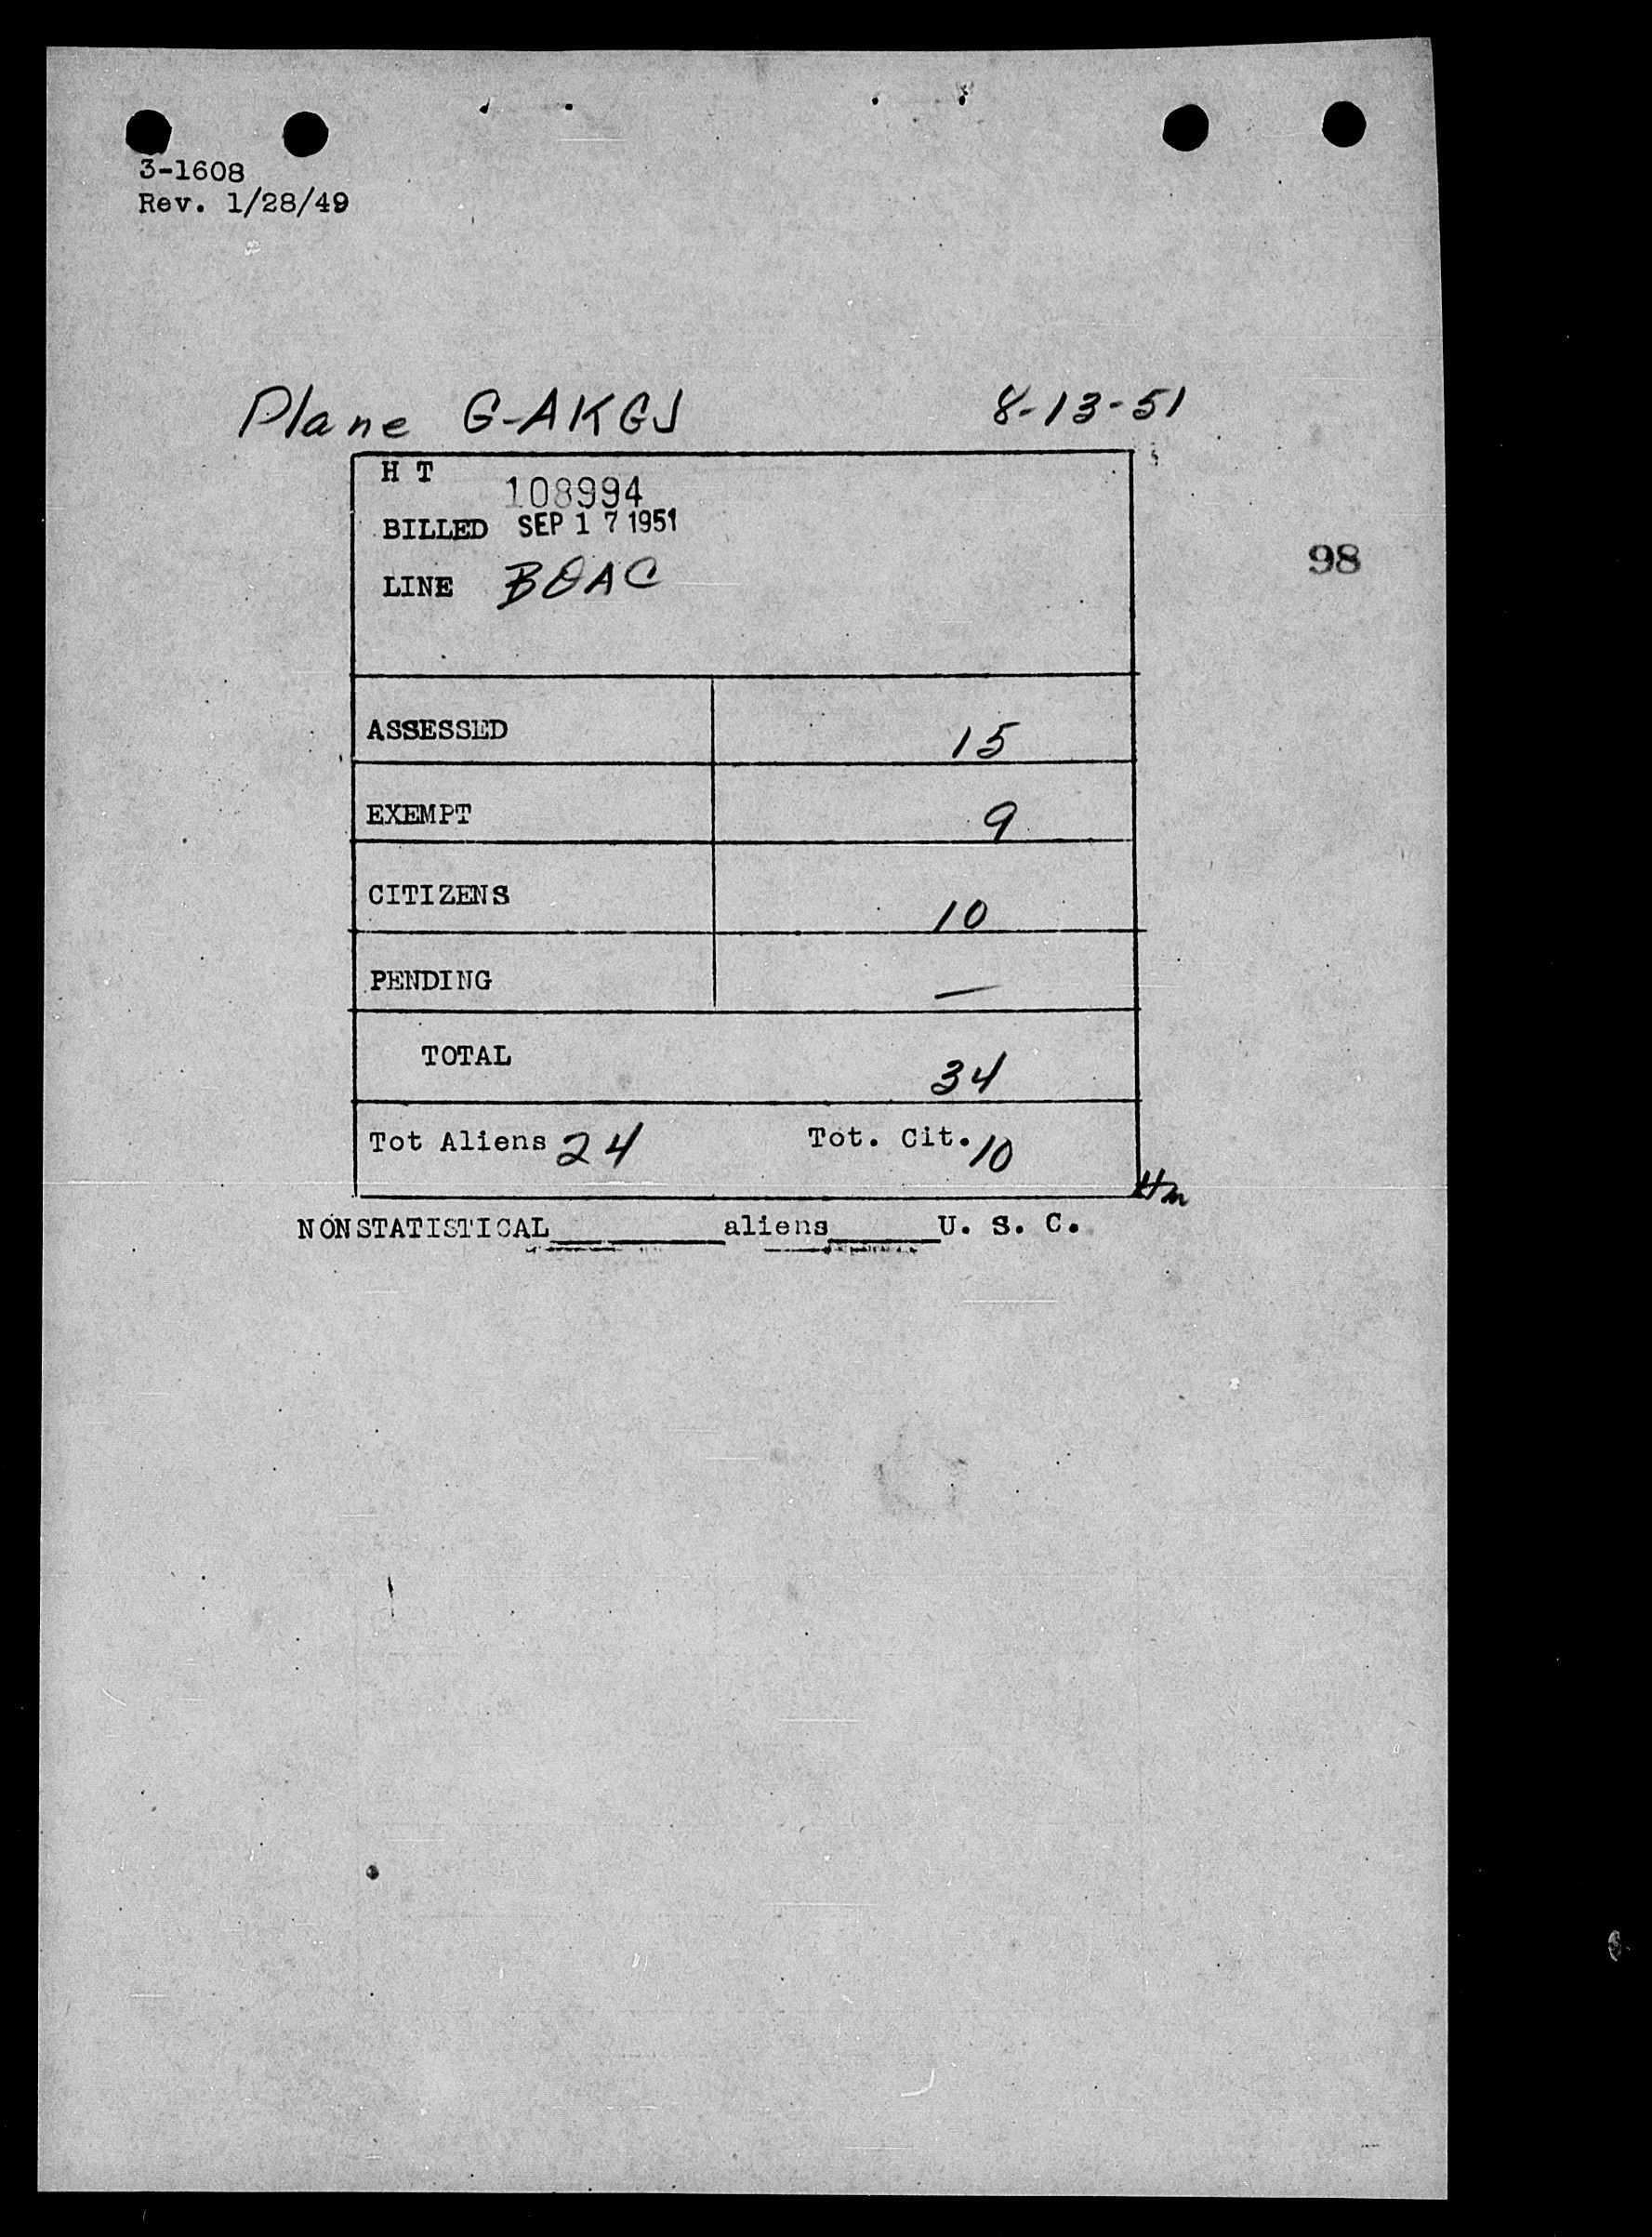 3-1608
Rev. 1/28/49
Plane G-AKGJ 8-13-51
H T 108994
BILLED SEP 17 1951
98
LINE BOAC
ASSESSED 15
EXEMPT 9
CITIZENS 10
PENDING —
TOTAL 34
Tot Aliens 24 Tot. Cit. 10
NONSTATISTICAL__________aliens______U. S. C.